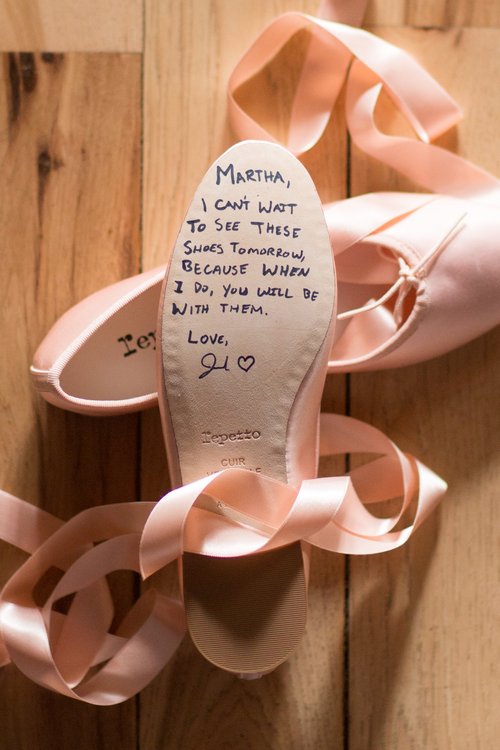 MARTHA,
I CAN'T WAIT
TO SEE THESE
SHOES TOMORROW,
BECAUSE WHEN
I DO, YOU WILL BE
WITH THEM.
LOVE,
repetto
CUIR